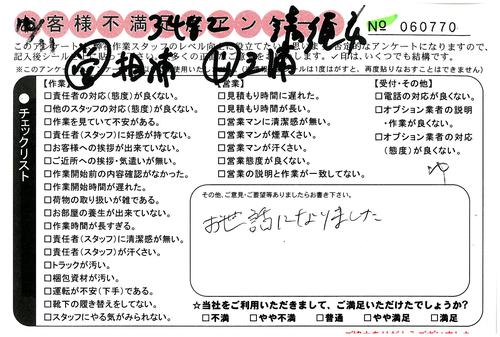 客様不満足アンケート
№ 060770
記入後シール
【作業】
□責任者の対応(態度)が良くない。
□他のスタッフの対応(態度)が良くない。
□作業を見ていて不安がある。
□責任者(スタッフ)に好感が持てない。
□お客様への挨拶が出来ていない。
□ご近所への挨拶・気遣いが無い。
□作業開始前の内容確認がなかった。
□作業開始時間が遅れた。
□荷物の取り扱いが雑である。
□お部屋の養生が出来ていない。
□作業時間が長すぎる。
□責任者(スタッフ)に清潔感が無い。
□責任者(スタッフ)が汗くさい。
□トラックが汚い。
□梱包資材が汚い。
□運転が不安(下手)である。
□靴下の履き替えをしてない。
□スタッフにやる気がみられない。
【営業】
□見積もり時間に遅れた。
□見積もり時間が長い。
□営業マンに清潔感が無い。
□営業マンが煙草くさい。
□営業マンが汗くさい。
□営業態度が良くない。
□営業の説明と作業が一致してない。
【受付・その他】
□電話の対応が良くない。
□オプション業者の説明・作業が良くない。
□オプション業者の対応(態度)が良くない。
●チェックリスト
その他、ご意見・ご要望等ありましたらお書き下さい。
お世話になりました
☆当社をご利用いただきまして、ご満足いただけたでしょうか?
□不満 □やや不満 □普通 □やや満足 □満足